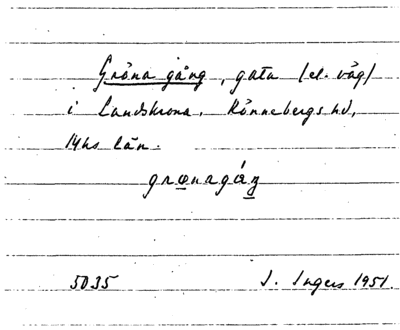 Gröna gång, gata (el. väg)
i Landskrona, Rönnebergs hd,
Mhs län.
5035 I. Ingers 1951.